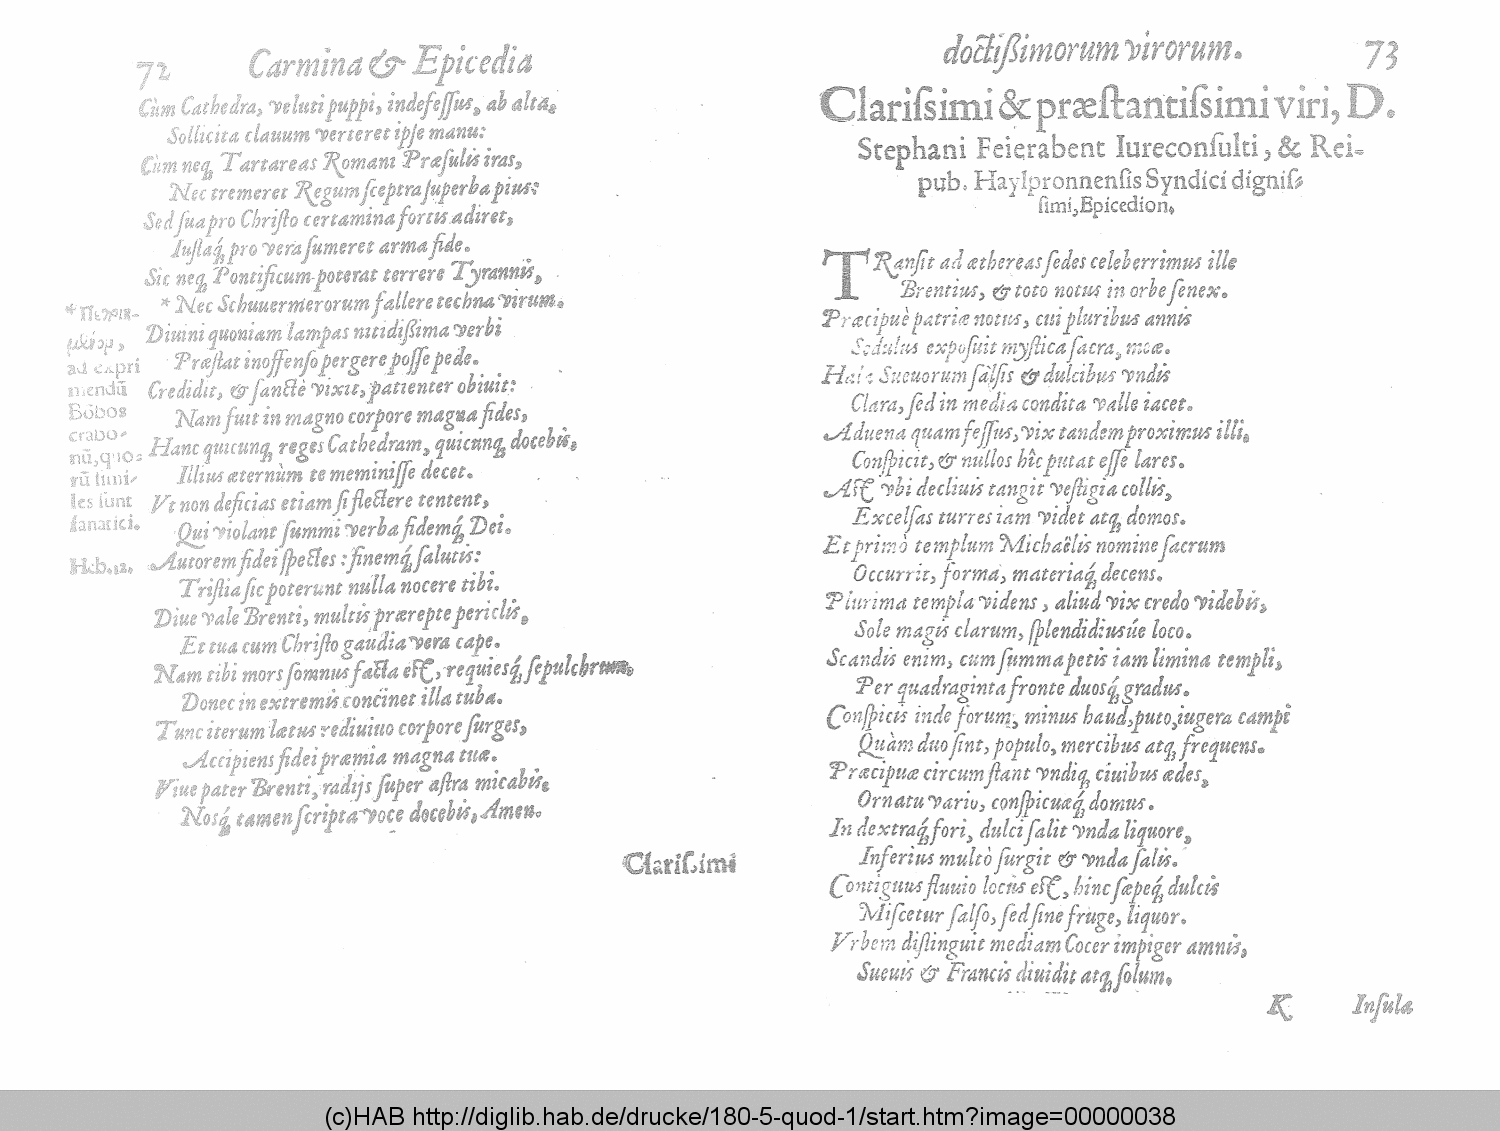 72 Carmina & Epicedia
Cùm Cathedra, veluti puppi, indefeſſus, ab alta,
Sollicita clauum verteret ipſe manu:
Cùm neq; Tartareas Romani Præſulis iras,
Nec tremeret Regum ſceptra ſuperba pius:
Sed ſua pro Chriſto certamina fortis adiret,
Iuſtaq́; pro vera ſumeret arma fide.
Sic neq; Pontificum poterat terrere Tyrannis,
* Nec Schuuermerorum fallere techna virum.
Diuini quoniam lampas nitidißima verbi
Præſtat inoffenſo pergere poſſe pede.
Credidit, & ſanctè vixit, patienter obiuit:
Nam fuit in magno corpore magna fides,
Hanc quicunq; reges Cathedram, quicunq; docebis,
Illius æternùm te meminiſſe decet.
Vt non deficias etiam ſi flectere tentent,
Qui violant ſummi verba fidemq́; Dei.
Autorem fidei ſpectes : finemq́; ſalutis:
Triſtia ſic poterunt nulla nocere tibi.
Diue vale Brenti, multis prærepte periclis,
Et tua cum Chriſto gaudia vera cape.
Nam tibi mors ſomnus facta eſt, requiesq́; ſepulchrum,
Donec in extremis concinet illa tuba.
Tunc iterum lætus rediuiuo corpore ſurges,
Accipiens fidei præmia magna tuæ.
Viue pater Brenti, radijs ſuper aſtra micabis,
Nosq́; tamen ſcripta voce docebis, Amen.
ad expri
mendũ
Bòbos
crabo-
nũ, quo-
rũ ſimi-
les ſunt
fanatici.
Heb. 12.
Clariſsimi
doctißimorum virorum. 73
Clariſsimi & præſtantiſsimi viri, D.
Stephani Feierabent Iureconſulti, & Rei-
pub. Haylpronnenſis Syndici digniſ-
ſimi, Epicedion,
TRanſit ad æthereas ſedes celeberrimus ille
Brentius, & toto notus in orbe ſenex.
Præcipuè patriæ notus, cui pluribus annis
Sedulus expoſuit myſtica ſacra, meæ.
Hala Sueuorum ſalſis & dulcibus vndis
Clara, ſed in media condita valle iacet.
Aduena quam feſſus, vix tandem proximus illi,
Conſpicit, & nullos hîc putat eſſe lares.
Aſt vbi decliuis tangit veſtigia collis,
Excelſas turres iam videt atq; domos.
Et primò templum Michaêlis nomine ſacrum
Occurrit, forma, materiaq́; decens.
Plurima templa videns, aliud vix credo videbis,
Sole magis clarum, ſplendidiusúe loco.
Scandis enim, cum ſumma petis iam limina templi,
Per quadraginta fronte duosq́; gradus.
Conſpicis inde forum, minus haud, puto, iugera campi
Quàm duo ſint, populo, mercibus atq; frequens.
Præcipuæ circumſtant vndiq; ciuibus ædes,
Ornatu vario, conſpicuaq́; domus.
In dextraq́; fori, dulci ſalit vnda liquore,
Inferius multò ſurgit & vnda ſalis.
Contiguus fluuio locus eſt, hinc ſæpeq́; dulcis
Miſcetur ſalſo, ſed ſine fruge, liquor.
Vrbem diſtinguit mediam Cocer impiger amnis,
Sueuis & Francis diuidit atq; ſolum.
K Inſula
(c)HAB http://diglib.hab.de/drucke/180-5-quod-1/start.htm?image=00000038